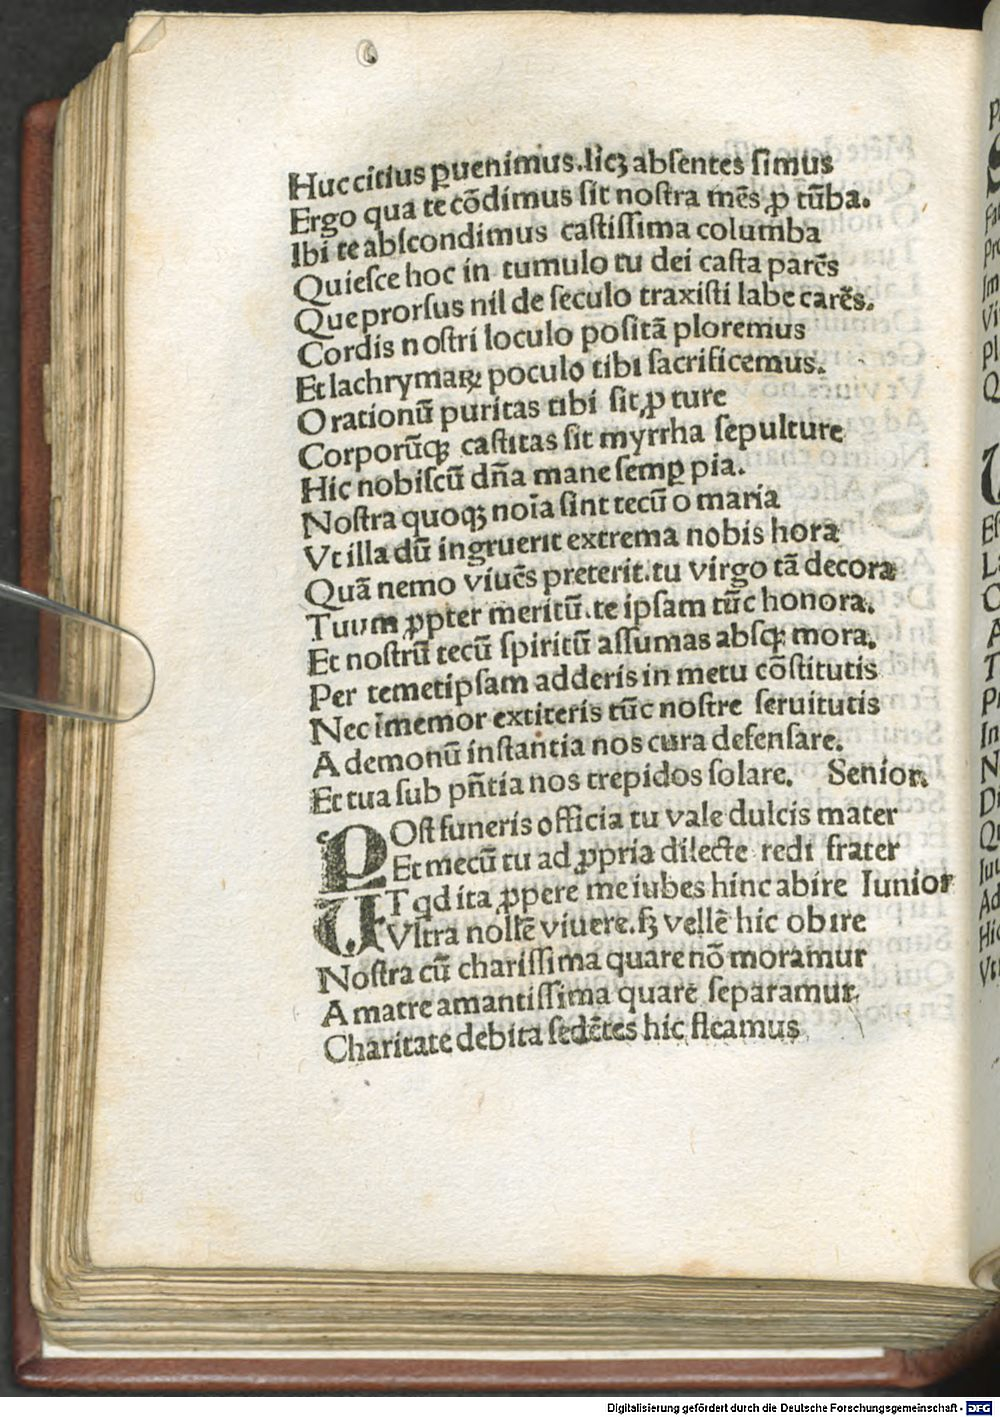 Huc citius ꝑuenimus.licꝫ absentes simus
Ergo qua te cōdimus sit nostra mēs ꝓ tūba.
Ibi te abscondimus castissima columba
Quiesce hoc in tumulo tu dei casta parēs
Que prorsus nil de seculo traxisti labe carēs.
Cordis nostri loculo positā ploremus
Et lachrymaꝝ poculo tibi sacrificemus.
Orationū puritas tibi sit ꝓ ture
Corporūqꝫ castitas sit myrrha sepulture
Hic nobiscū dn̄a mane semꝑ pia.
Nostra quoqꝫ noīa sint tecū o maria
Vt illa dū ingruerit extrema nobis hora
Quā nemo viuēs preterit.tu virgo tā decora
Tuum ꝓpter meritū.te ipsam tūc honora.
Et nostrū tecū spiritū assumas absqꝫ mora.
Per temetipsam adderis in metu cōstitutis
Nec īmemor extiteris tūc nostre seruitutis
A demonū instantia nos cura defensare.
Et tua sub pn̄tia nos trepidos solare. Senior.
POst funeris officia tu vale dulcis mater
Et mecū tu ad ꝓpria dilecte redi frater
UT qd ita ꝓpere me iubes hinc abire Iunior
Vltra nollē viuere.sꝫ vellē hic obire
Nostra cū charissima quare nō moramur
A matre amantissima quare separamur.
Charitate debita sedētes hic fleamus
Digitalisierung gefördert durch die Deutsche Forschungsgemeinschaft - DFG